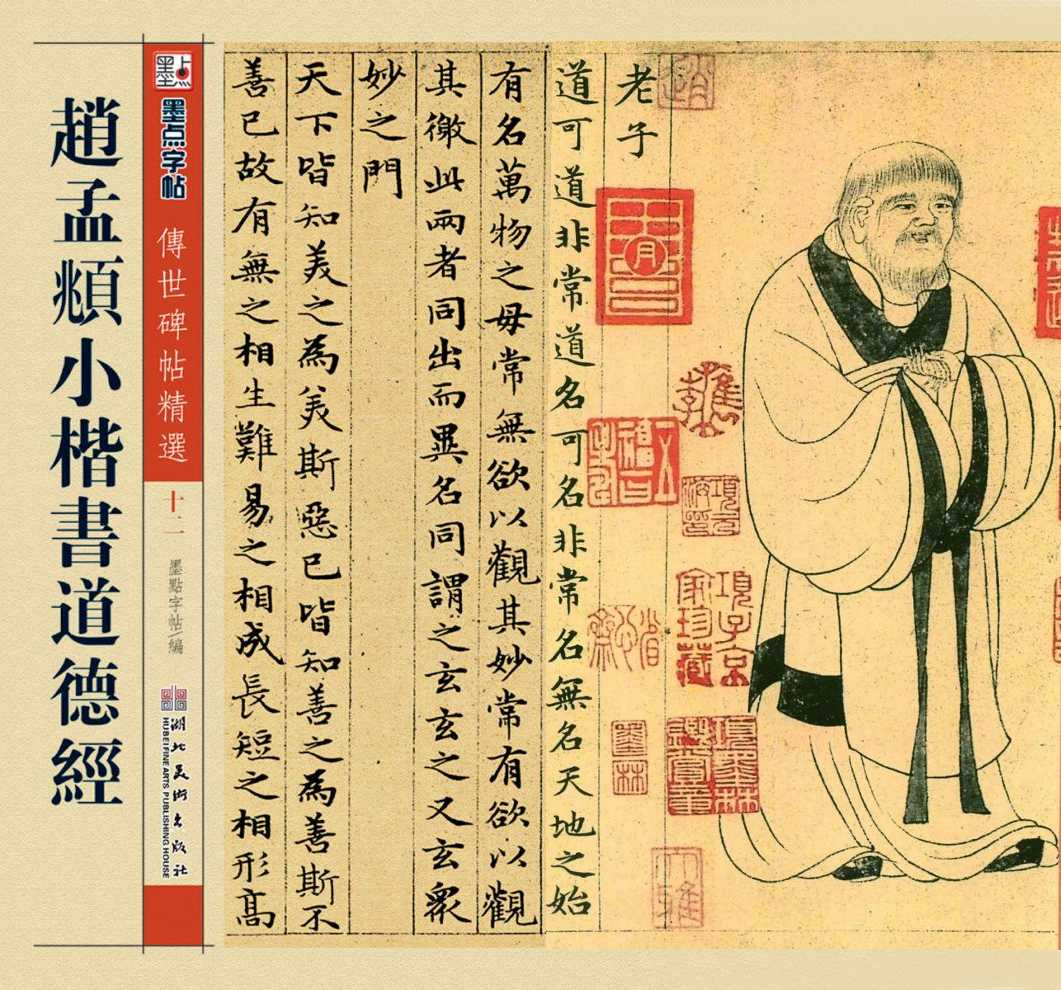 老子
道可道非常道名可名非常名無名天地之始
有名萬物之母常無欲以觀其妙常有欲以觀
其徼此兩者同出而異名同謂之玄玄之又玄衆
妙之門
天下皆知美之為美斯惡已皆知善之為善斯不
善已故有無之相生難易之相成長短之相形高
墨点
墨点字帖
傳世碑帖精選
十二
墨點字帖/编
湖北美術出版社
HUBEI FINE ARTS PUBLISHING HOUSE
趙孟頫小楷書道德經
項子京家珍藏
項墨林鑑賞章
墨林